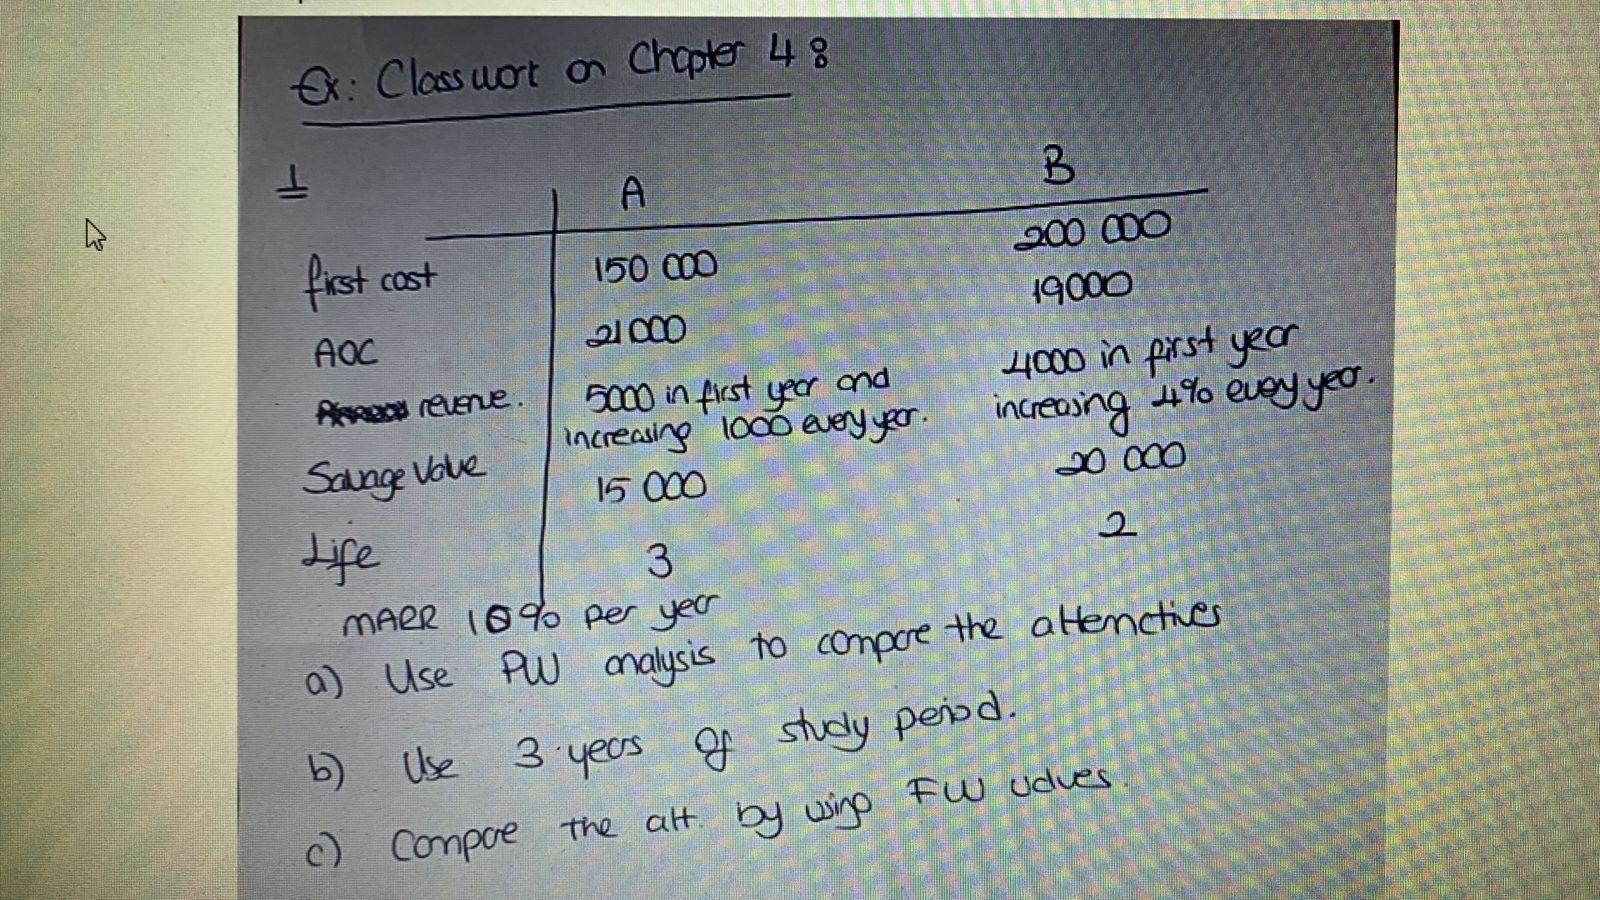 Ex: Classwork on Chapter 4 8
1
A B
first cost 150 000 200 000
AOC 21000 19000
revenue. 5000 in first year and increasing 1000 every year. 4000 in first year increasing 4% every year.
Salvage Value 15 000 20 000
Life 3 2
MARR 10% per year
a) Use PW analysis to compare the alternatives
b) Use 3 years of study period.
c) Compare the alt. by using FW values.